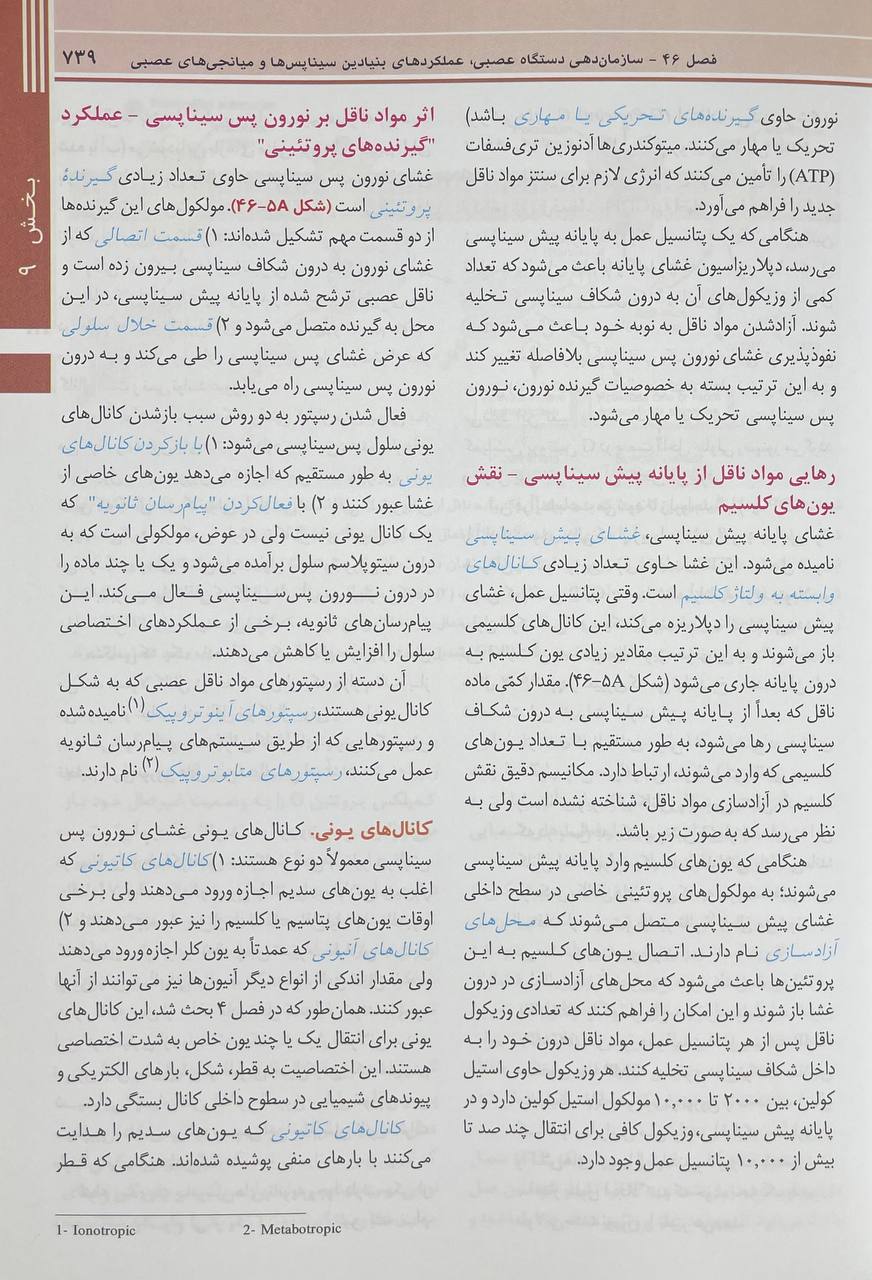 فصل ۴۶ - سازمان‌دهی دستگاه عصبی، عملکردهای بنیادین سیناپس‌ها و میانجی‌های عصبی
۷۳۹
بخش ۹
نورون حاوی گیرنده‌های تحریکی یا مهاری باشد)
تحریک یا مهار می‌کنند. میتوکندری‌ها آدنوزین تری‌فسفات
(ATP) را تأمین می‌کنند که انرژی لازم برای سنتز مواد ناقل
جدید را فراهم می‌آورد.
هنگامی که یک پتانسیل عمل به پایانه پیش سیناپسی
می‌رسد، دپلاریزاسیون غشای پایانه باعث می‌شود که تعداد
کمی از وزیکول‌های آن به درون شکاف سیناپسی تخلیه
شوند. آزادشدن مواد ناقل به نوبه خود باعث می‌شود که
نفوذپذیری غشای نورون پس سیناپسی بلافاصله تغییر کند
و به این ترتیب بسته به خصوصیات گیرنده نورون، نورون
پس سیناپسی تحریک یا مهار می‌شود.
رهایی مواد ناقل از پایانه پیش سیناپسی - نقش
یون‌های کلسیم
غشای پایانه پیش سیناپسی، غشای پیش سیناپسی
نامیده می‌شود. این غشا حاوی تعداد زیادی کانال‌های
وابسته به ولتاژ کلسیم است. وقتی پتانسیل عمل، غشای
پیش سیناپسی را دپلاریزه می‌کند، این کانال‌های کلسیمی
باز می‌شوند و به این ترتیب مقادیر زیادی یون کلسیم به
درون پایانه جاری می‌شود (شکل ۴۶-۵A). مقدار کمّی ماده
ناقل که بعداً از پایانه پیش سیناپسی به درون شکاف
سیناپسی رها می‌شود، به طور مستقیم با تعداد یون‌های
کلسیمی که وارد می‌شوند، ارتباط دارد. مکانیسم دقیق نقش
کلسیم در آزادسازی مواد ناقل، شناخته نشده است ولی به
نظر می‌رسد که به صورت زیر باشد.
هنگامی که یون‌های کلسیم وارد پایانه پیش سیناپسی
می‌شوند؛ به مولکول‌های پروتئینی خاصی در سطح داخلی
غشای پیش سیناپسی متصل می‌شوند که محل‌های
آزادسازی نام دارند. اتصال یون‌های کلسیم به این
پروتئین‌ها باعث می‌شود که محل‌های آزادسازی در درون
غشا باز شوند و این امکان را فراهم کنند که تعدادی وزیکول
ناقل پس از هر پتانسیل عمل، مواد ناقل درون خود را به
داخل شکاف سیناپسی تخلیه کنند. هر وزیکول حاوی استیل
کولین، بین ۲۰۰۰ تا ۱۰,۰۰۰ مولکول استیل کولین دارد و در
پایانه پیش سیناپسی، وزیکول کافی برای انتقال چند صد تا
بیش از ۱۰,۰۰۰ پتانسیل عمل وجود دارد.
اثر مواد ناقل بر نورون پس سیناپسی - عملکرد
"گیرنده‌های پروتئینی"
غشای نورون پس سیناپسی حاوی تعداد زیادی گیرندهٔ
پروتئینی است (شکل ۴۶-۵A). مولکول‌های این گیرنده‌ها
از دو قسمت مهم تشکیل شده‌اند: ۱) قسمت اتصالی که از
غشای نورون به درون شکاف سیناپسی بیرون زده است و
ناقل عصبی ترشح شده از پایانه پیش سیناپسی، در این
محل به گیرنده متصل می‌شود و ۲) قسمت خلال سلولی
که عرض غشای پس سیناپسی را طی می‌کند و به درون
نورون پس سیناپسی راه می‌یابد.
فعال شدن رسپتور به دو روش سبب بازشدن کانال‌های
یونی سلول پس سیناپسی می‌شود: ۱) با بازکردن کانال‌های
یونی به طور مستقیم که اجازه می‌دهد یون‌های خاصی از
غشا عبور کنند و ۲) با فعال‌کردن "پیام‌رسان ثانویه" که
یک کانال یونی نیست ولی در عوض، مولکولی است که به
درون سیتوپلاسم سلول برآمده می‌شود و یک یا چند ماده را
در درون نورون پس‌سیناپسی فعال می‌کند. این
پیام‌رسان‌های ثانویه، برخی از عملکردهای اختصاصی
سلول را افزایش یا کاهش می‌دهند.
آن دسته از رسپتورهای مواد ناقل عصبی که به شکل
کانال یونی هستند، رسپتورهای آینوتروپیک(۱) نامیده شده
و رسپتورهایی که از طریق سیستم‌های پیام‌رسان ثانویه
عمل می‌کنند، رسپتورهای متابوتروپیک(۲) نام دارند.
کانال‌های یونی. کانال‌های یونی غشای نورون پس
سیناپسی معمولاً دو نوع هستند: ۱) کانال‌های کاتیونی که
اغلب به یون‌های سدیم اجازه ورود می‌دهند ولی برخی
اوقات یون‌های پتاسیم یا کلسیم را نیز عبور می‌دهند و ۲)
کانال‌های آنیونی که عمدتاً به یون کلر اجازه ورود می‌دهند
ولی مقدار اندکی از انواع دیگر آنیون‌ها نیز می‌توانند از آنها
عبور کنند. همان‌طور که در فصل ۴ بحث شد، این کانال‌های
یونی برای انتقال یک یا چند یون خاص به شدت اختصاصی
هستند. این اختصاصیت به قطر، شکل، بارهای الکتریکی و
پیوندهای شیمیایی در سطوح داخلی کانال بستگی دارد.
کانال‌های کاتیونی که یون‌های سدیم را هدایت
می‌کنند با بارهای منفی پوشیده شده‌اند. هنگامی که قطر
1- Ionotropic
2- Metabotropic